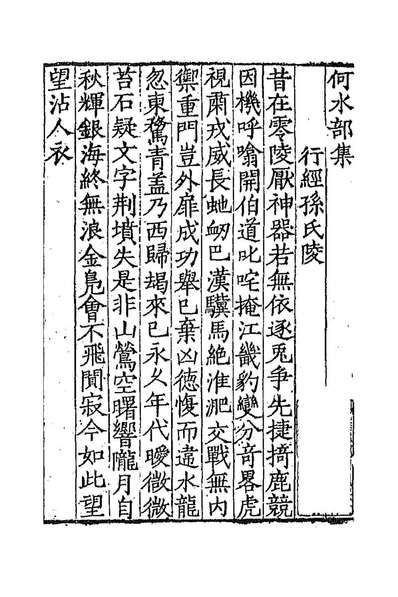 何水部集
行經孫氏陵
昔在零陵厭神器若無依逐兎爭先捷掎鹿競
因機呼噏開伯道叱咤掩江畿豹變分竒畧虎
視肅戎威長虵衂巴漢驥馬絶淮淝交戰無内
禦重門豈外扉成功舉已棄凶德愎而違水龍
忽東騖青盖乃西歸朅來已永久年代曖微微
苔石疑文字荆墳失是非山鶯空曙響隴月自
秋輝銀海終無浪金鳧會不飛闃寂今如此望
望沾人衣